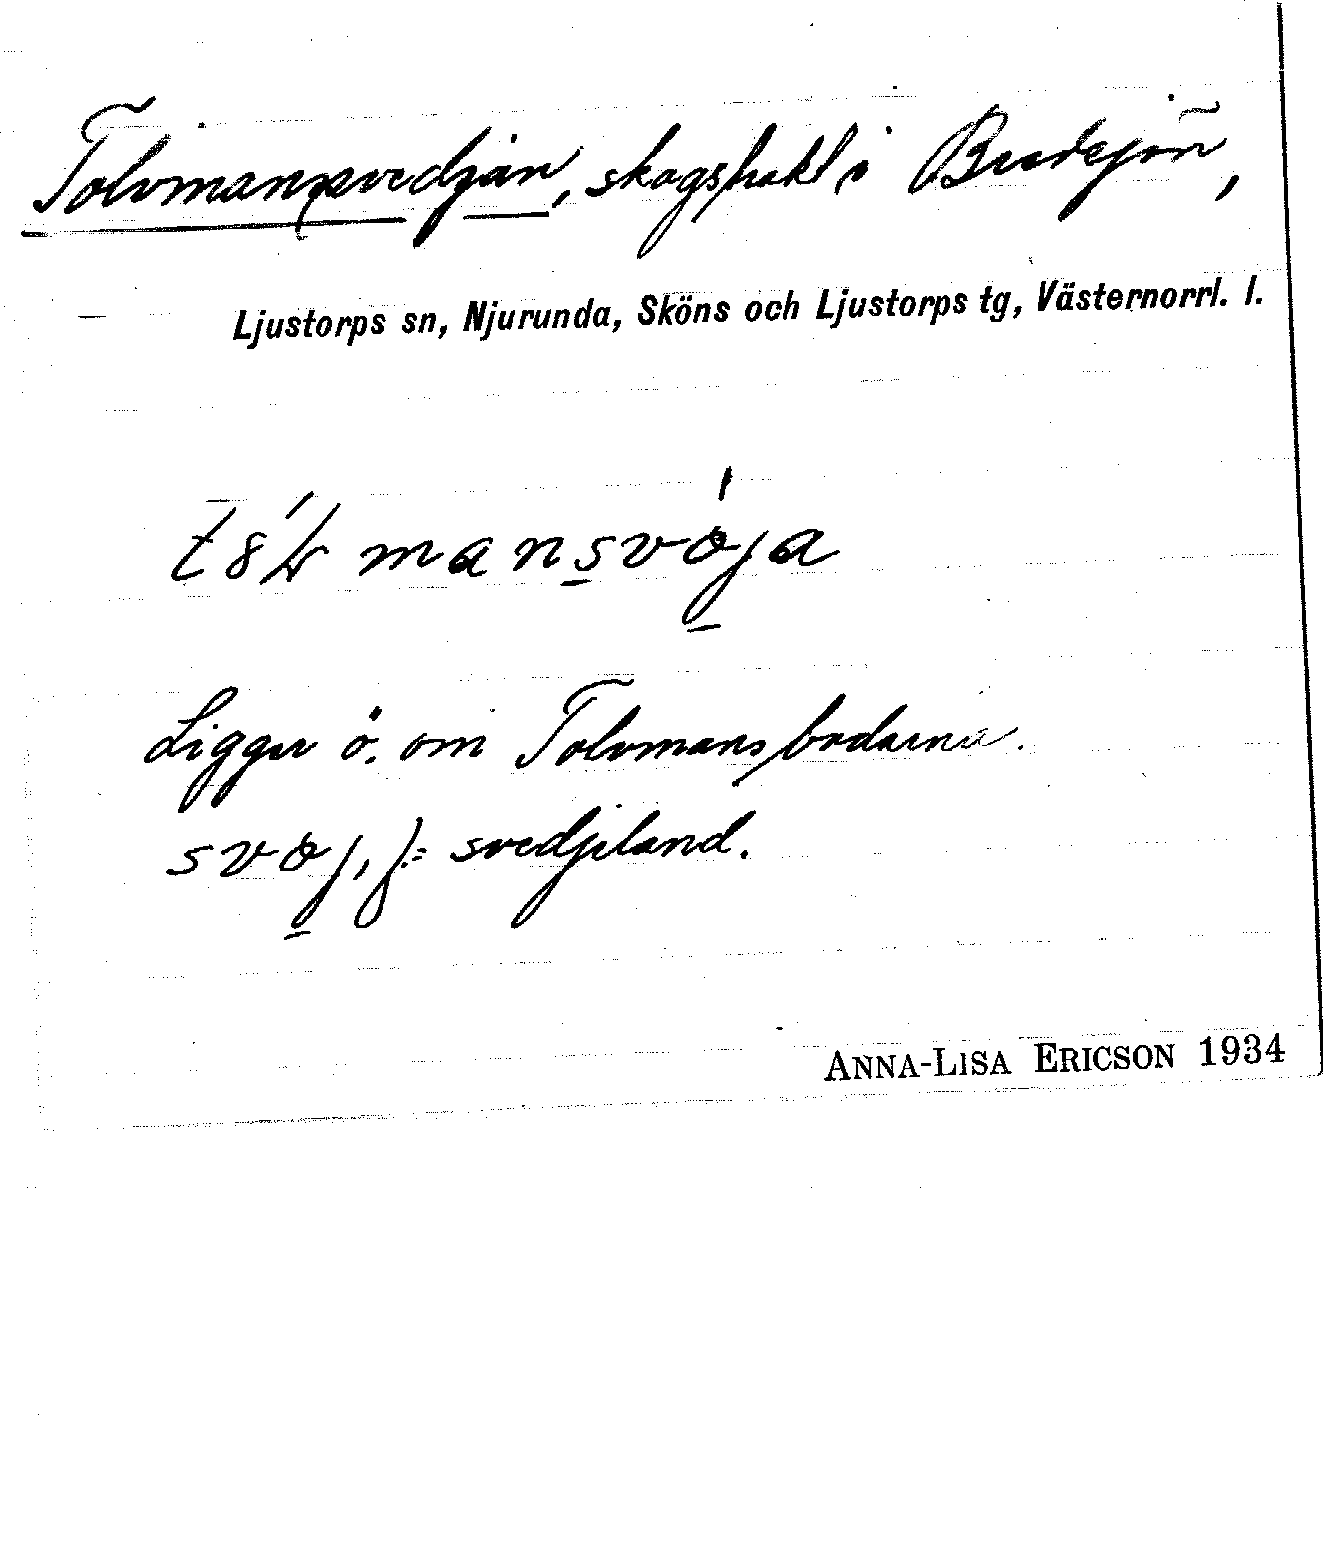 Tolvmanssvedjan, skogstrakt i Bredsjön,
Ljustorps sn, Njurunda, Sköns och Ljustorps tg, Västernorrl. l.
Ligger ö. om Tolvmansbodarna.
svedjeland.
ANNA-LISA ERICSON 1934